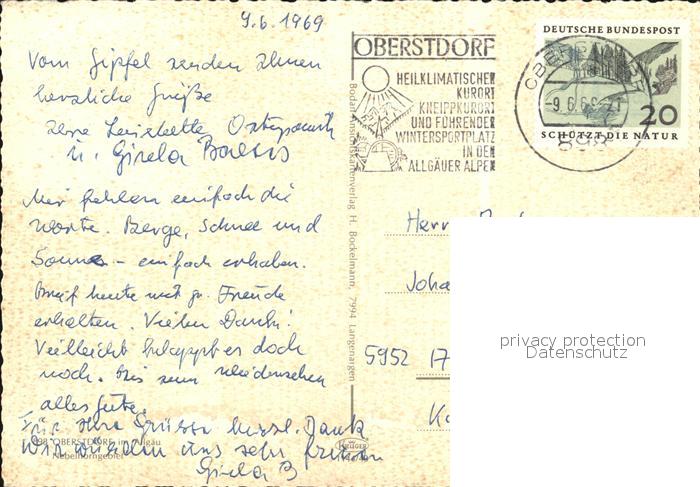 9.6.1969
Vom Gipfel senden Ihnen
herzliche Grüße
Ihre Liselotte
u. Gisela
Mir fehlen einfach die
Worte. Berge, Schnee und
Sonne – einfach erhaben.
Brief heute mit gr. Freude
erhalten. Vielen Dank!
Vielleicht klappt es doch
noch. Bis zum Wiedersehen
alles Gute.
Für Ihre Grüsse herzl. Dank
Wir würden uns sehr freuen
Gisela B
898 OBERSTDORF im Allgäu
Nebelhorngebiet
Bodan-Ansichtskartenverlag H. Bockelmann, 7994 Langenargen
KRÜGER
OBERSTDORF
HEILKLIMATISCHER
KURORT
KNEIPPKURORT
UND FÜHRENDER
WINTERSPORTPLATZ
IN DEN
ALLGÄUER ALPEN
DEUTSCHE BUNDESPOST
20
SCHÜTZT DIE NATUR
OBERSTDORF
-9.6.69-21
898
Herrn
Joha
5952
privacy protection
Datenschutz